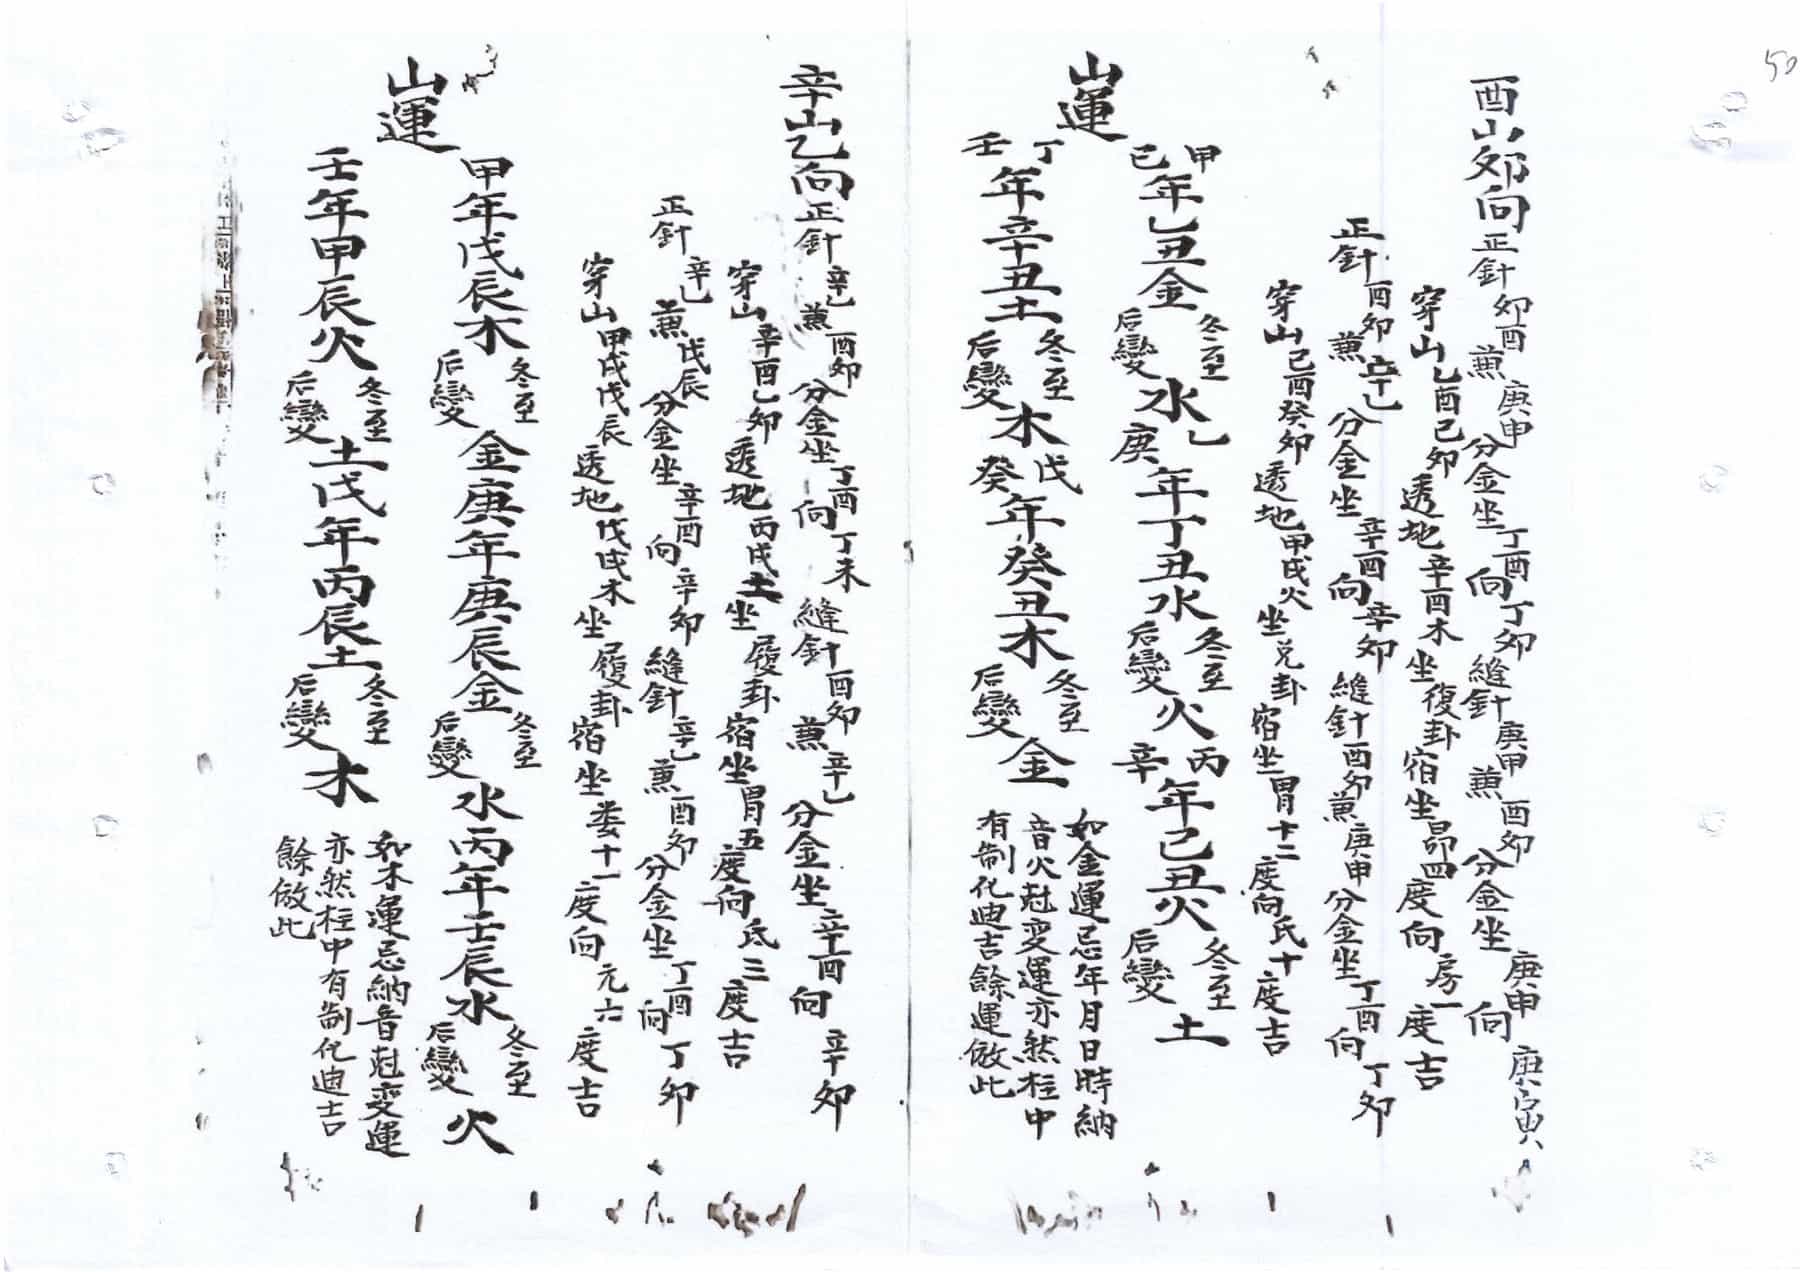 50
酉山夘向正針夘酉兼庚甲分金坐丁酉向丁夘縫針庚甲兼酉夘分金坐庚申向庚寅
穿山乙酉己夘透地辛酉木坐復卦宿坐昴四度向房一度吉
正針酉夘兼辛乙分金坐辛酉向辛夘縫針酉夘兼庚甲分金坐丁酉向丁夘
穿山己酉癸夘透地甲戌火坐兑卦宿坐胃十二度向氏十度吉
山運
甲己年乙丑金冬至后變水乙庚年丁丑水冬至后變火丙辛年己丑火冬至后變土
丁壬年辛丑土冬至后變木戊癸年癸丑木冬至后變金
如金運忌年月日時納
音火尅变運亦然柱中
有制化迪吉餘運倣此
辛山乙向正針辛乙兼酉夘分金坐丁酉向丁未縫針酉夘兼辛乙分金坐辛酉向辛夘
穿山辛酉乙夘透地丙戌土坐履卦宿坐胃五度向氐三度吉
正針辛乙兼戊辰分金坐辛酉向辛夘縫針辛乙兼酉夘分金坐丁酉向丁夘
穿山甲戌戊辰透地戊戌木坐履卦宿坐娄十一度向亢六度吉
山運
甲年戊辰木冬至后變金庚年庚辰金冬至后變水丙年壬辰水冬至后變火
壬年甲辰火冬至后變土戊年丙辰土冬至后變木
如木運忌納音尅变運
亦然柱中有制化迪吉
餘倣此